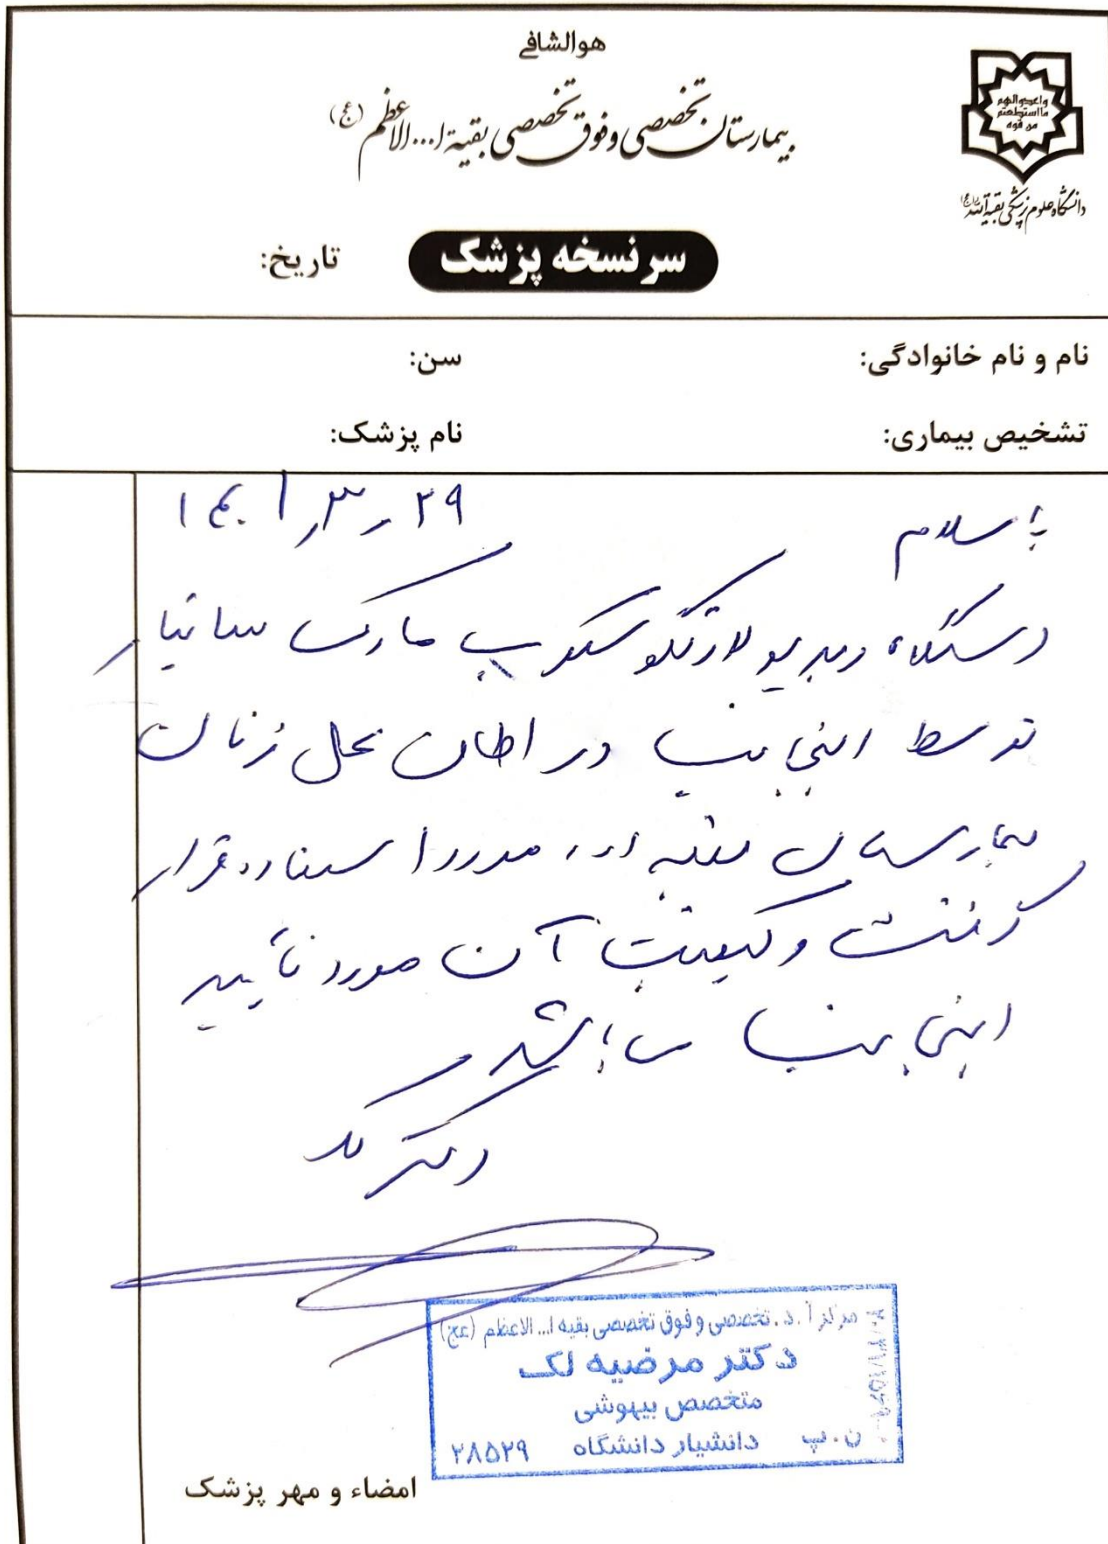 هوالشافی
بیمارستان تخصصی و فوق تخصصی بقیة ا... الاعظم (عج)
واعدوا لهم
ما استطعتم
من قوه
دانشگاه علوم پزشکی بقیة الله (عج)
سر نسخه پزشک
تاریخ:
نام و نام خانوادگی:
سن:
تشخیص بیماری:
نام پزشک:
۱۴۰۱٫۳٫۲۹
با سلام
دستگاه ویدیو لارنگوسکوپ مارک سانیار
توسط اینجانب در اطاق عمل زنان
بیمارستان بقیه ا... مورد استفاده قرار
گرفت و کیفیت آن مورد تایید
اینجانب می باشد
دکتر لک
مرکز آ. د. تخصصی و فوق تخصصی بقیه ا... الاعظم (عج)
دکتر مرضیه لک
متخصص بیهوشی
ن.پ دانشیار دانشگاه ۲۸۵۲۹
امضاء و مهر پزشک